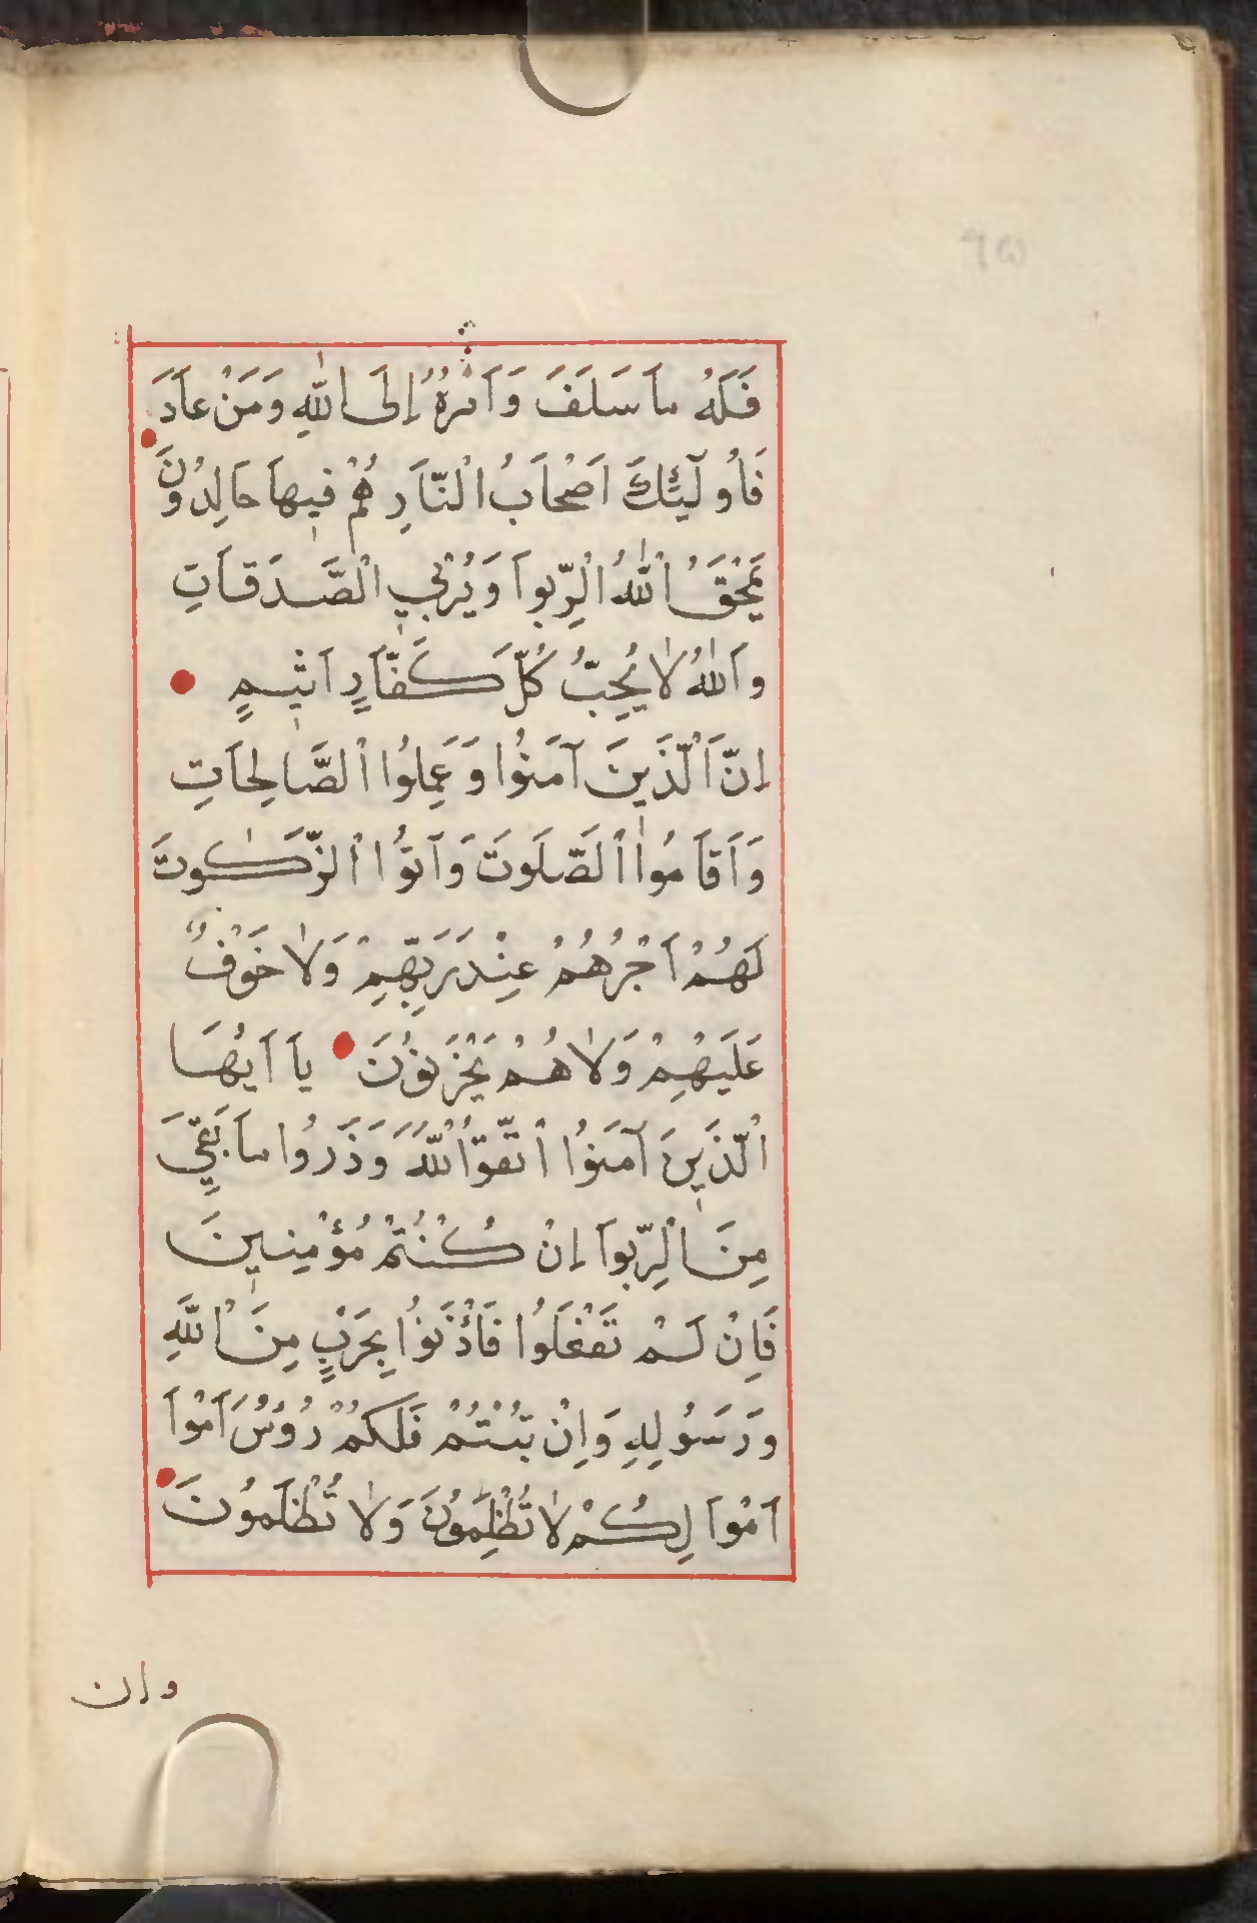 فَلَهُ مَا سَلَفَ وَاَمْرُهُ إِلَى اللّٰهِ وَمَنْ عَادَ
فَاُولَٓئِكَ اَصْحَابُ الْنَّارِ هُمْ فِيهَا خَالِدُونَ
يَمْحَقُ اللّٰهُ الْرِّبوا وَيُرْبِي الْصَّدَقَاتِ
وَاللّٰهُ لَا يُحِبُّ كُلَّ كَفَّارٍ اَثِيمٍ
اِنَّ الَّذِينَ آمَنُوا وَعَمِلُوا الْصَّالِحَاتِ
وَاَقَامُوا الْصَّلَوتَ وَآتَوُا الْزَّكَوتَ
لَهُمْ اَجْرُهُمْ عِنْدَ رَبِّهِمْ وَلَا خَوْفٌ
عَلَيْهِمْ وَلَا هُمْ يَحْزَنُونَ يَا اَيُّهَا
الَّذِينَ آمَنُوا اتَّقُوا اللّٰهَ وَذَرُوا مَا بَقِيَ
مِنَ الْرِّبوا اِنْ كُنْتُمْ مُؤْمِنِينَ
فَاِنْ لَمْ تَفْعَلُوا فَأْذَنُوا بِحَرْبٍ مِنَ اللّٰهِ
وَرَسُولِهِ وَاِنْ تُبْتُمْ فَلَكُمْ رُؤُسُ اَمْوَا
اَمْوَا لِكُمْ لَا تَظْلِمُونَ وَلَا تُظْلَمُونَ
وان